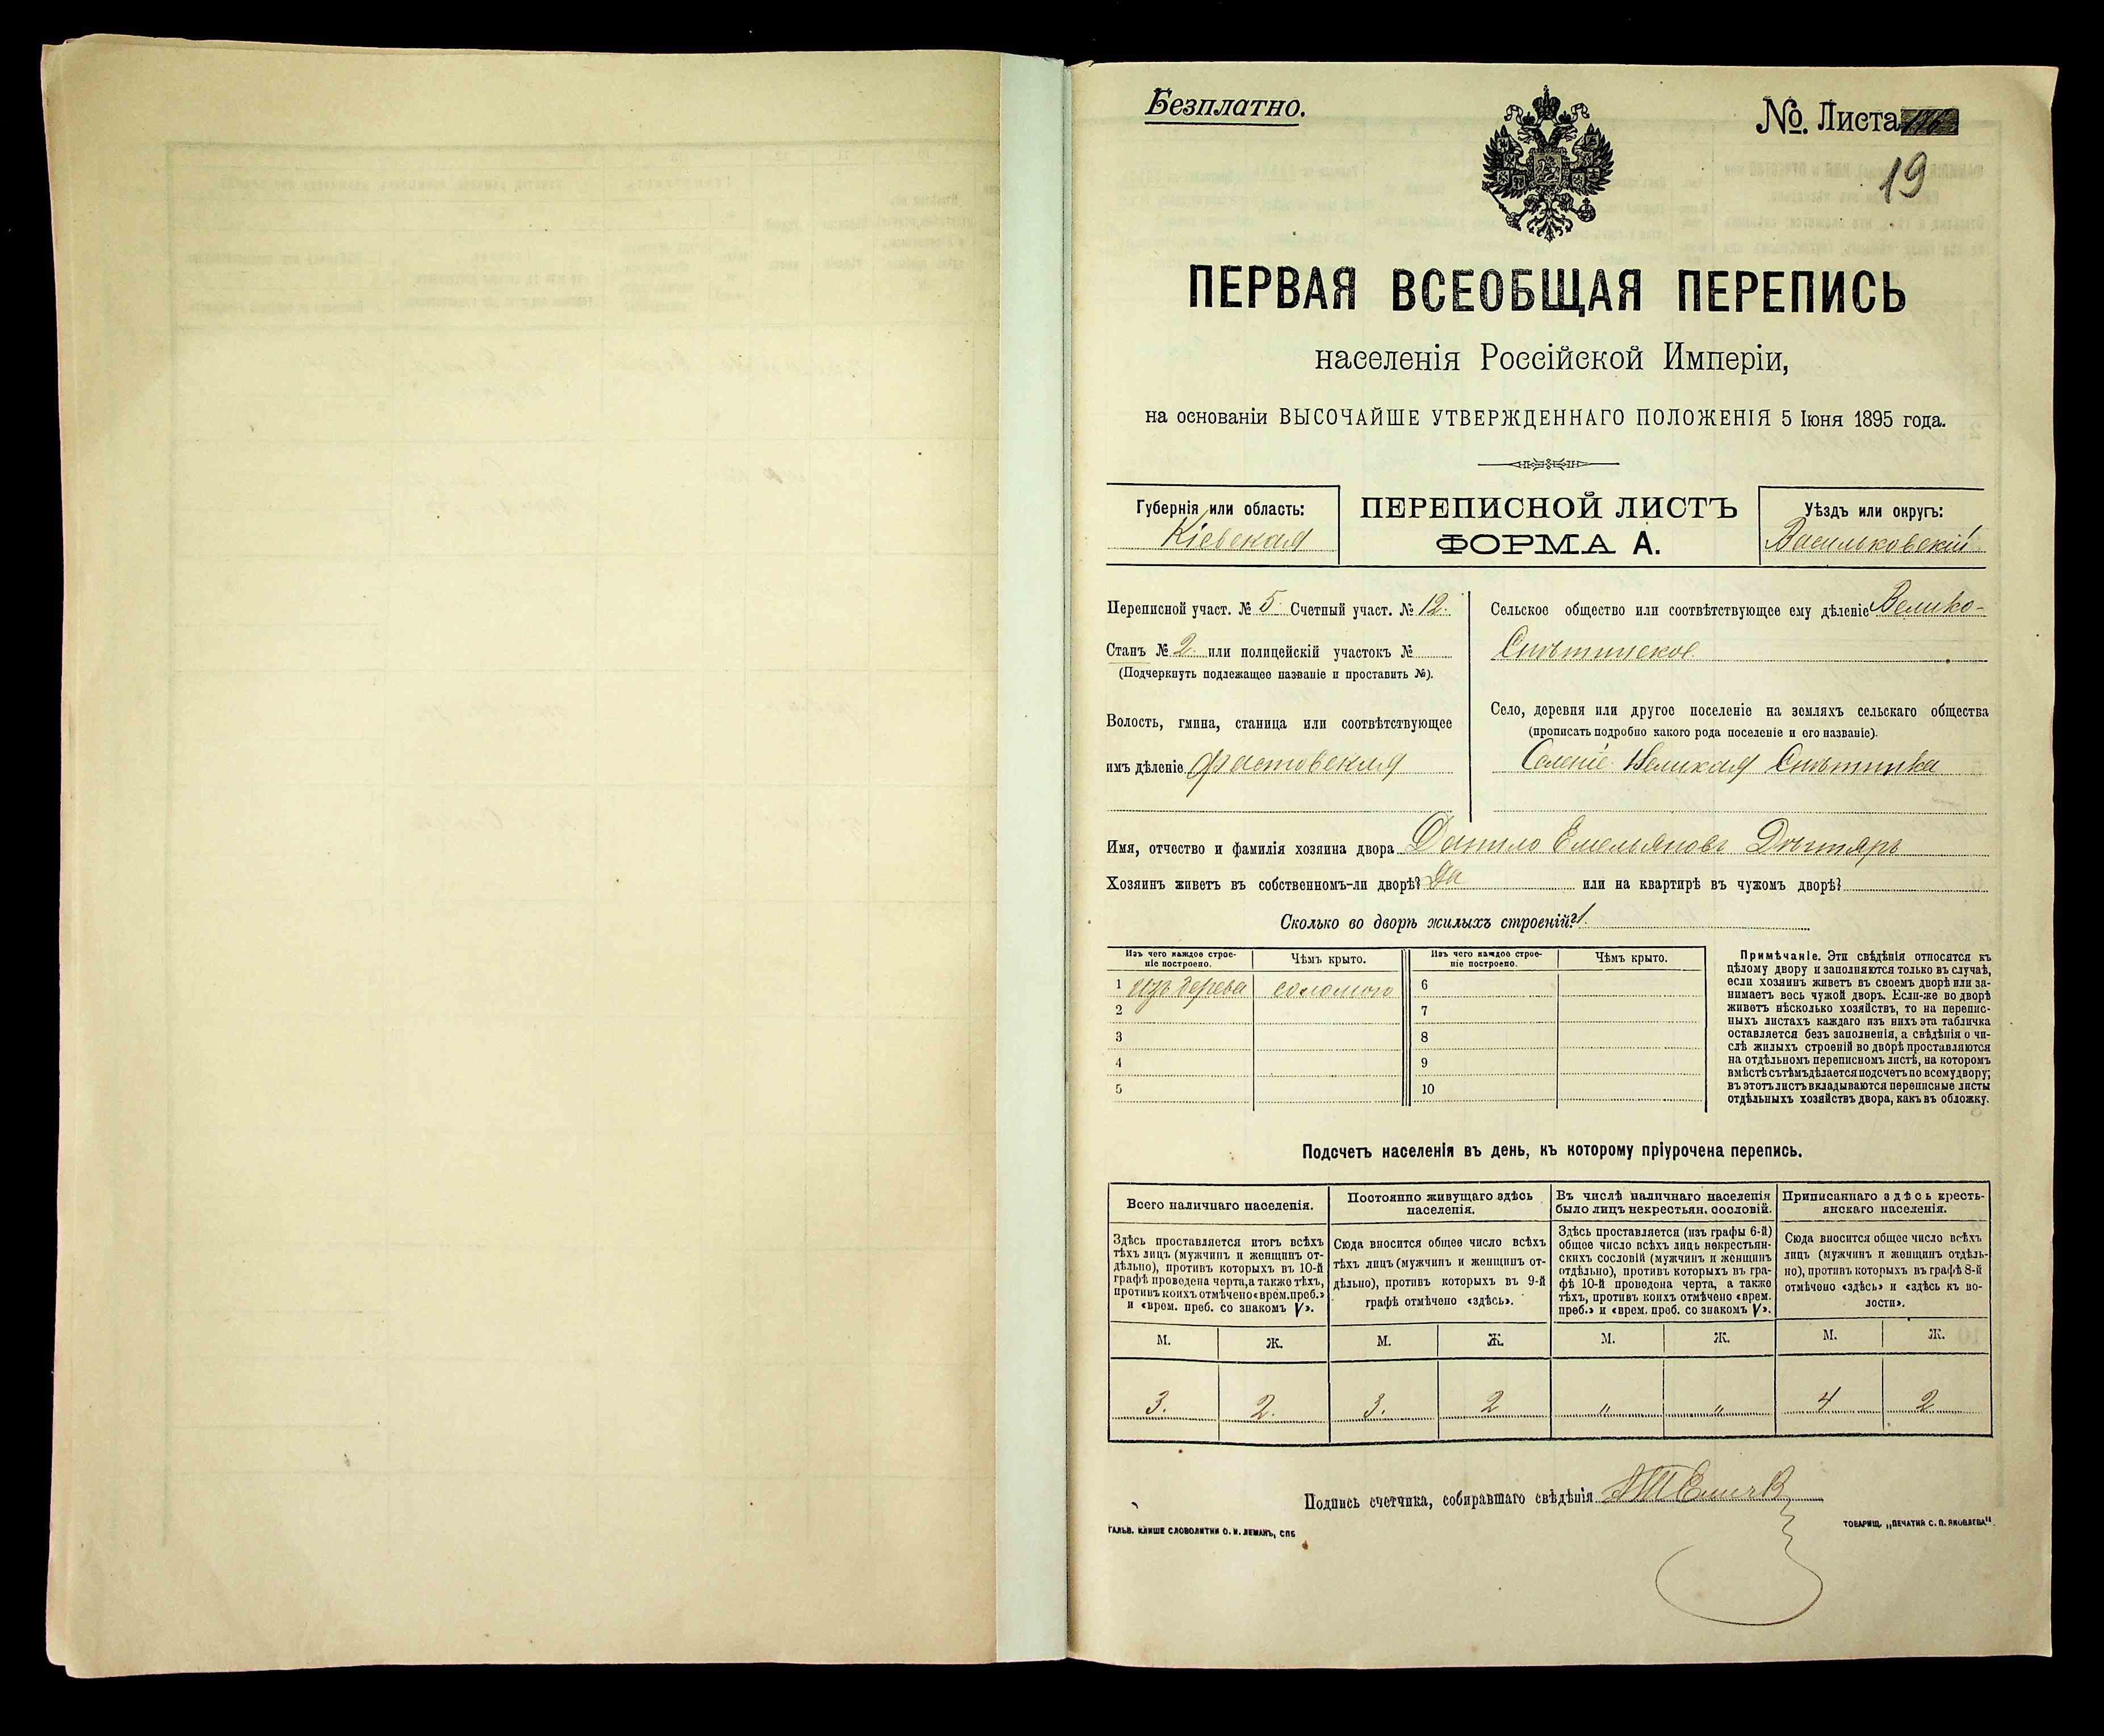 Безплатно.
№. Листа 176
19
ПЕРВАЯ ВСЕОБЩАЯ ПЕРЕПИСЬ
населенія Россійской Имперіи,
на основаніи ВЫСОЧАЙШЕ УТВЕРЖДЕННАГО ПОЛОЖЕНІЯ 5 Іюня 1895 года.
Губернія или область:
Кіевская
ПЕРЕПИСНОЙ ЛИСТЪ
ФОРМА А.
Уѣздъ или округъ:
Васильковскій
Переписной участ. № 5. Счетный участ. № 12.
Станъ № 2. или полицейскій участокъ №
(Подчеркнуть подлежащее названіе и проставить №).
Волость, гмина, станица или соотвѣтствующее
имъ дѣленіе Фастовская
Сельское общество или соотвѣтствующее ему дѣленіе Велико-
Снѣтинское
Село, деревня или другое поселеніе на земляхъ сельскаго общества
(прописать подробно какого рода поселеніе и его названіе).
Селеніе Великая Снѣтинка
Имя, отчество и фамилія хозяина двора Данило Емельяновъ Дѣгтярь
Хозяинъ живетъ въ собственномъ-ли дворѣ? Да или на квартирѣ въ чужомъ дворѣ?
Сколько во дворѣ жилыхъ строеній? 1.
Изъ чего каждое строе-
ніе построено.
Чѣмъ крыто.
Изъ чего каждое строе-
ніе построено.
Чѣмъ крыто.
1 изъ дерева соломою 6
2 7
3 8
4 9
5 10
Примѣчаніе. Эти свѣдѣнія относятся къ
цѣлому двору и заполняются только въ случаѣ,
если хозяинъ живетъ въ своемъ дворѣ или за-
нимаетъ весь чужой дворъ. Если-же во дворѣ
живетъ нѣсколько хозяйствъ, то на перепис-
ныхъ листахъ каждаго изъ нихъ эта табличка
оставляется безъ заполненія, а свѣдѣнія о чи-
слѣ жилыхъ строеній во дворѣ проставляются
на отдѣльномъ переписномъ листѣ, на которомъ
вмѣстѣ съ тѣмъ дѣлается подсчетъ по всему двору;
въ этотъ листъ вкладываются переписные листы
отдѣльныхъ хозяйствъ двора, какъ въ обложку.
Подсчетъ населенія въ день, къ которому пріурочена перепись.
Всего наличнаго населенія.
Здѣсь проставляется итогъ всѣхъ
тѣхъ лицъ (мужчинъ и женщинъ от-
дѣльно), противъ которыхъ въ 10-й
графѣ проведена черта, а также тѣхъ,
противъ коихъ отмѣчено «врем. преб.»
и «врем. преб. со знакомъ V».
Постоянно живущаго здѣсь
населенія.
Сюда вносится общее число всѣхъ
тѣхъ лицъ (мужчинъ и женщинъ от-
дѣльно), противъ которыхъ въ 9-й
графѣ отмѣчено «здѣсь».
Въ числѣ наличнаго населенія
было лицъ некрестьян. сословій.
Здѣсь проставляется (изъ графы 6-й)
общее число всѣхъ лицъ некрестьян-
скихъ сословій (мужчинъ и женщинъ
отдѣльно), противъ которыхъ въ гра-
фѣ 10-й проведена черта, а также
тѣхъ, противъ коихъ отмѣчено «врем.
преб.» и «врем. преб. со знакомъ V».
Приписаннаго здѣсь кресть-
янскаго населенія.
Сюда вносится общее число всѣхъ
лицъ (мужчинъ и женщинъ отдѣль-
но), противъ которыхъ въ графѣ 8-й
отмѣчено «здѣсь» и «здѣсь къ во-
лости».
М. Ж. М. Ж. М. Ж. М. Ж.
3. 2. 3. 2 " " 4 2
Подпись счетчика, собиравшаго свѣдѣнія
ГАЛЬВ. КЛИШЕ СЛОВОЛИТНИ О. И. ЛЕМАНЪ, СПБ
ТОВАРИЩ. „ПЕЧАТНЯ С. П. ЯКОВЛЕВА".